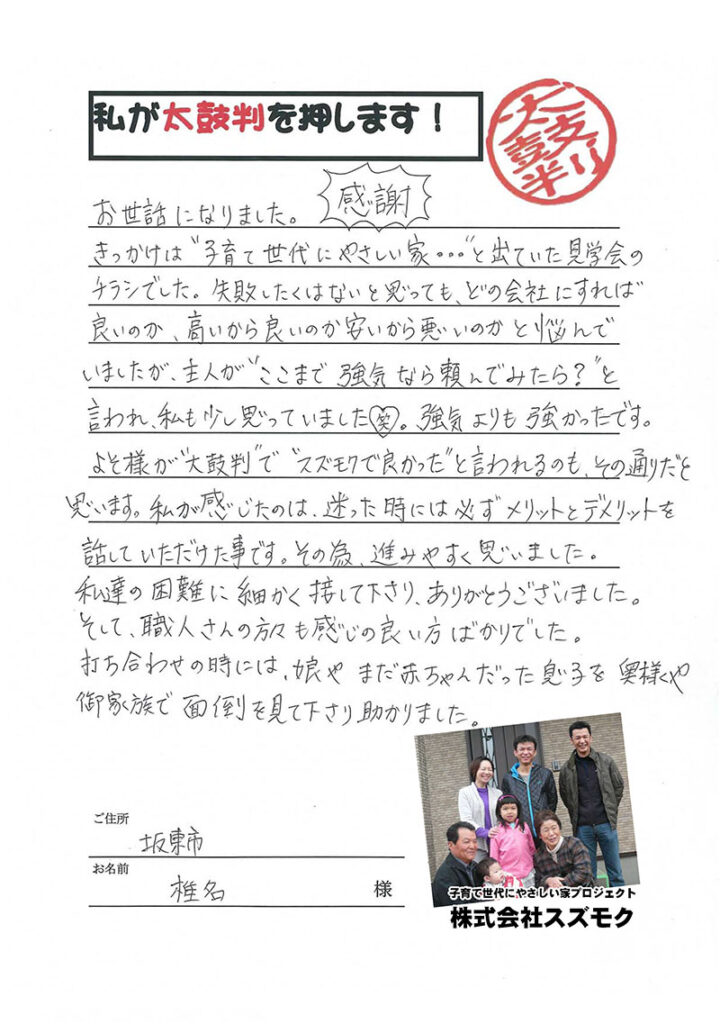 私が太鼓判を押します！
太鼓判
お世話になりました。 感謝
きっかけは"子育て世代にやさしい家・・・"と出ていた見学会の
チラシでした。失敗したくはないと思っても、どの会社にすれば
良いのか、高いから良いのか安いから悪いのかと悩んで
いましたが、主人が"ここまで強気なら頼んでみたら？"と
言われ、私も少し思っていました笑。強気よりも強かったです。
よそ様が"太鼓判"で"スズモクで良かった"と言われるのも、その通りだと
思います。私が感じたのは、迷った時には必ずメリットとデメリットを
話していただけた事です。その為、進みやすく思いました。
私達の困難に細かく接して下さり、ありがとうございました。
そして、職人さんの方々も感じの良い方ばかりでした。
打ち合わせの時には、娘やまだ赤ちゃんだった息子を奥様や
御家族で面倒を見て下さり助かりました。
ご住所
坂東市
お名前
椎名 様
子育て世代にやさしい家プロジェクト
株式会社スズモク